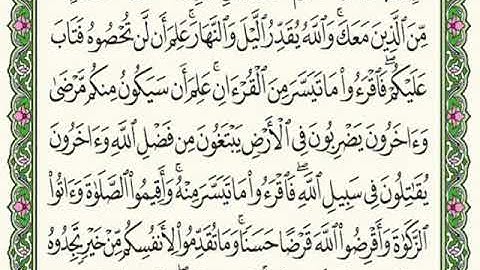 مِّنَ ٱلَّذِينَ مَعَكَۚ وَٱللَّهُ يُقَدِّرُ ٱلَّيۡلَ وَٱلنَّهَارَۚ عَلِمَ أَن لَّن تُحۡصُوهُ فَتَابَ
عَلَيۡكُمۡۖ فَٱقۡرَءُواْ مَا تَيَسَّرَ مِنَ ٱلۡقُرۡءَانِۚ عَلِمَ أَن سَيَكُونُ مِنكُم مَّرۡضَىٰ
وَءَاخَرُونَ يَضۡرِبُونَ فِي ٱلۡأَرۡضِ يَبۡتَغُونَ مِن فَضۡلِ ٱللَّهِ وَءَاخَرُونَ
يُقَٰتِلُونَ فِي سَبِيلِ ٱللَّهِۖ فَٱقۡرَءُواْ مَا تَيَسَّرَ مِنۡهُۚ وَأَقِيمُواْ ٱلصَّلَوٰةَ وَءَاتُواْ
ٱلزَّكَوٰةَ وَأَقۡرِضُواْ ٱللَّهَ قَرۡضًا حَسَنٗاۚ وَمَا تُقَدِّمُواْ لِأَنفُسِكُم مِّنۡ خَيۡرٖ تَجِدُوهُ